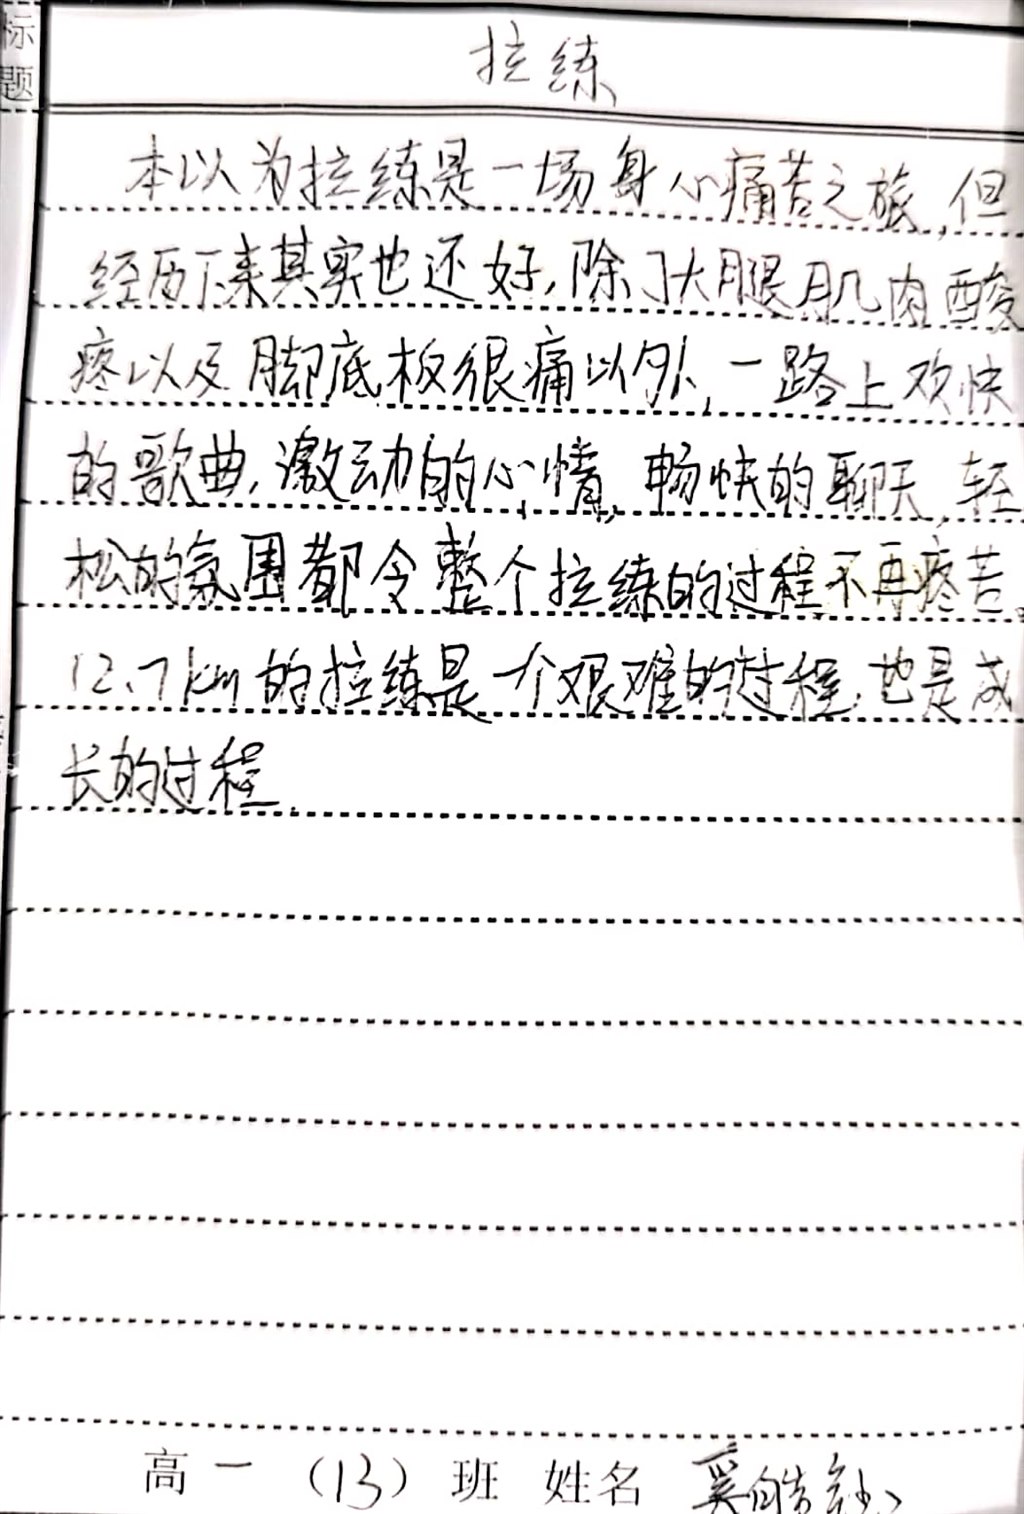 标题
拉练
本以为拉练是一场身心痛苦之旅,但
经历下来其实也还好,除了大腿肌肉酸
疼以及脚底板很痛以外,一路上欢快
的歌曲,激动的心情,畅快的聊天,轻
松的氛围都令整个拉练的过程不再疼苦。
12.7km的拉练是一个艰难的过程,也是成
长的过程.
高一(13)班 姓名 奚皓